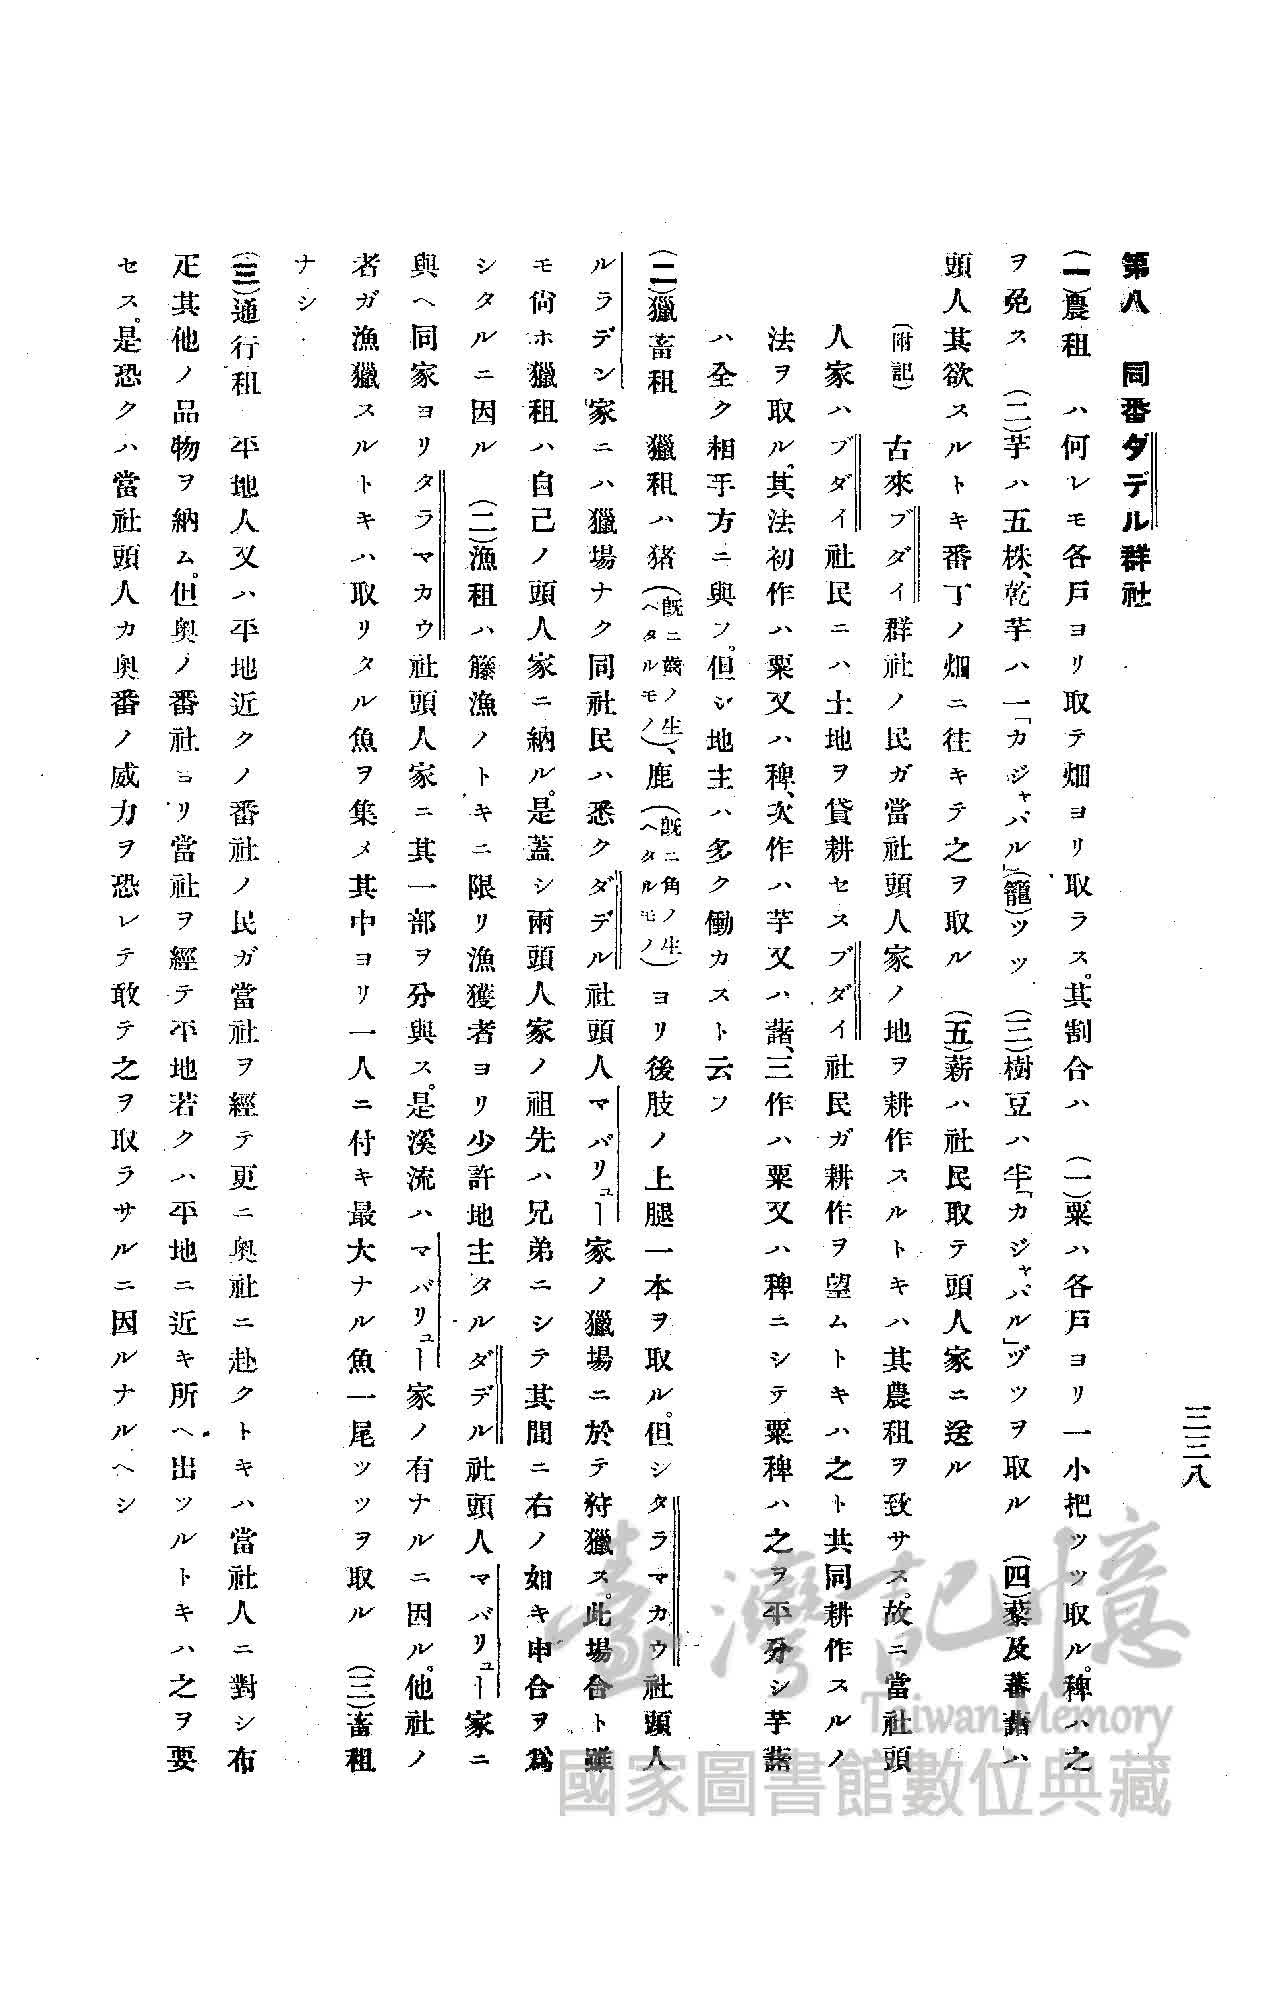 三三八
第八　同番ダデル群社
(一)農租　ハ何レモ各戶ヨリ取テ畑ヨリ取ラス。其割合ハ　(一)粟ハ各戶ヨリ一小把ツツ取ル。稗ハ之
ヲ免ス　(二)芋ハ五株、乾芋ハ一「カジャパル」(籠)ツツ　(三)樹豆ハ半「カジャパル」ヅツヲ取ル　(四)藜及蕃藷ハ
頭人其欲スルトキ番丁ノ畑ニ往キテ之ヲ取ル　(五)薪ハ社民取テ頭人家ニ送ル
(附記)　古來ブダイ群社ノ民ガ當社頭人家ノ地ヲ耕作スルトキハ其農租ヲ致サス。故ニ當社頭
人家ハブダイ社民ニハ土地ヲ貸耕セスブダイ社民ガ耕作ヲ望ムトキハ之ト共同耕作スルノ
法ヲ取ル。其法初作ハ粟又ハ稗、次作ハ芋又ハ藷、三作ハ粟又ハ稗ニシテ粟稗ハ之ヲ平分シ芋藷
ハ全ク相手方ニ與フ。但シ地主ハ多ク働カスト云フ
(二)獵畜租　獵租ハ猪(既ニ齒ノ生ヘタルモノ)、鹿(既ニ角ノ生ヘタルモノ)ヨリ後肢ノ上腿一本ヲ取ル。但シタラマカウ社頭人
ルラデン家ニハ獵場ナク同社民ハ悉クダデル社頭人マバリュー家ノ獵場ニ於テ狩獵ス。此場合ト雖
モ尙ホ獵租ハ自己ノ頭人家ニ納ル。是蓋シ兩頭人家ノ祖先ハ兄弟ニシテ其間ニ右ノ如キ申合ヲ爲
シタルニ因ル　(二)漁租ハ籐漁ノトキニ限リ漁獲者ヨリ少許地主タルダデル社頭人マバリュー家ニ
與ヘ同家ヨリタラマカウ社頭人家ニ其一部ヲ分與ス。是溪流ハマバリュー家ノ有ナルニ因ル。他社ノ
者ガ漁獵スルトキハ取リタル魚ヲ集メ其中ヨリ一人ニ付キ最大ナル魚一尾ツツヲ取ル　(三)畜租
ナシ
(三)通行租　平地人又ハ平地近クノ番社ノ民ガ當社ヲ經テ更ニ奧社ニ赴クトキハ當社人ニ對シ布
疋其他ノ品物ヲ納ム。但奧ノ番社ヨリ當社ヲ經テ平地若クハ平地ニ近キ所ヘ出ツルトキハ之ヲ要
セス。是恐クハ當社頭人カ奧番ノ威力ヲ恐レテ敢テ之ヲ取ラサルニ因ルナルヘシ
臺灣記憶
Taiwan Memory
國家圖書館數位典藏